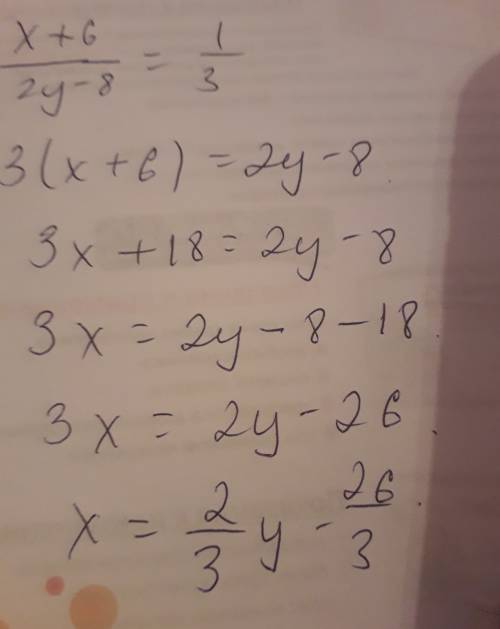 x+6/2y-8 = 1/3
3(x+6)=2y-8.
3x+18=2y-8
3x=2y-8-18.
3x=2y-26.
x=2/3y-26/3.